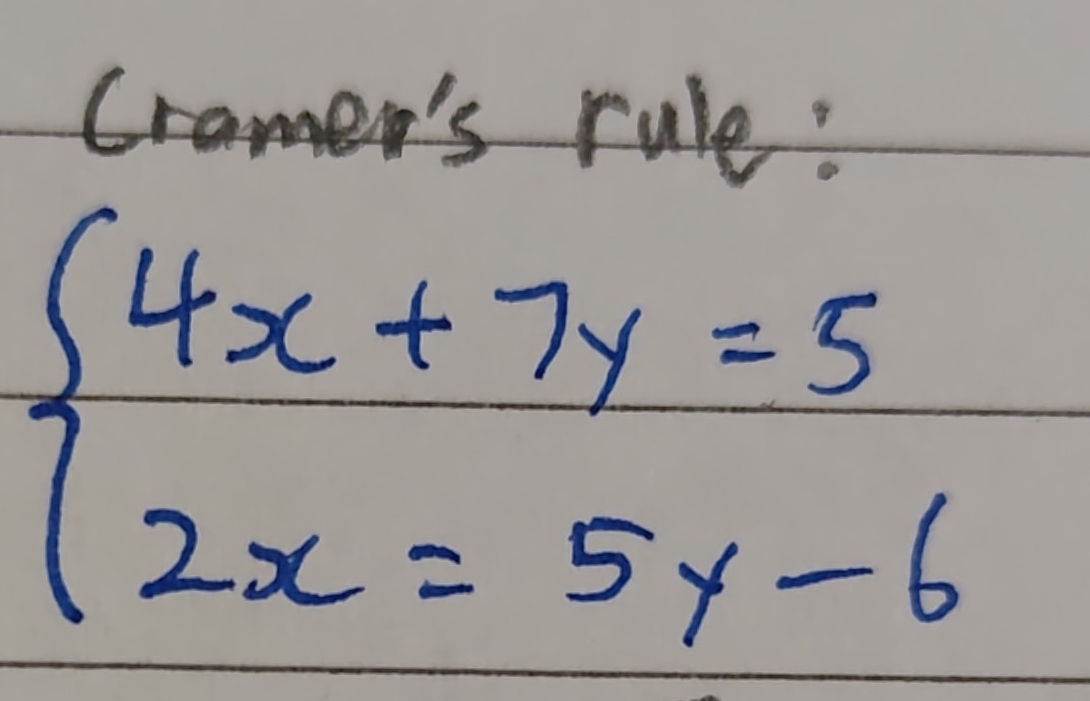 Cramer's rule:
4x + 7y = 5
2x = 5y - 6